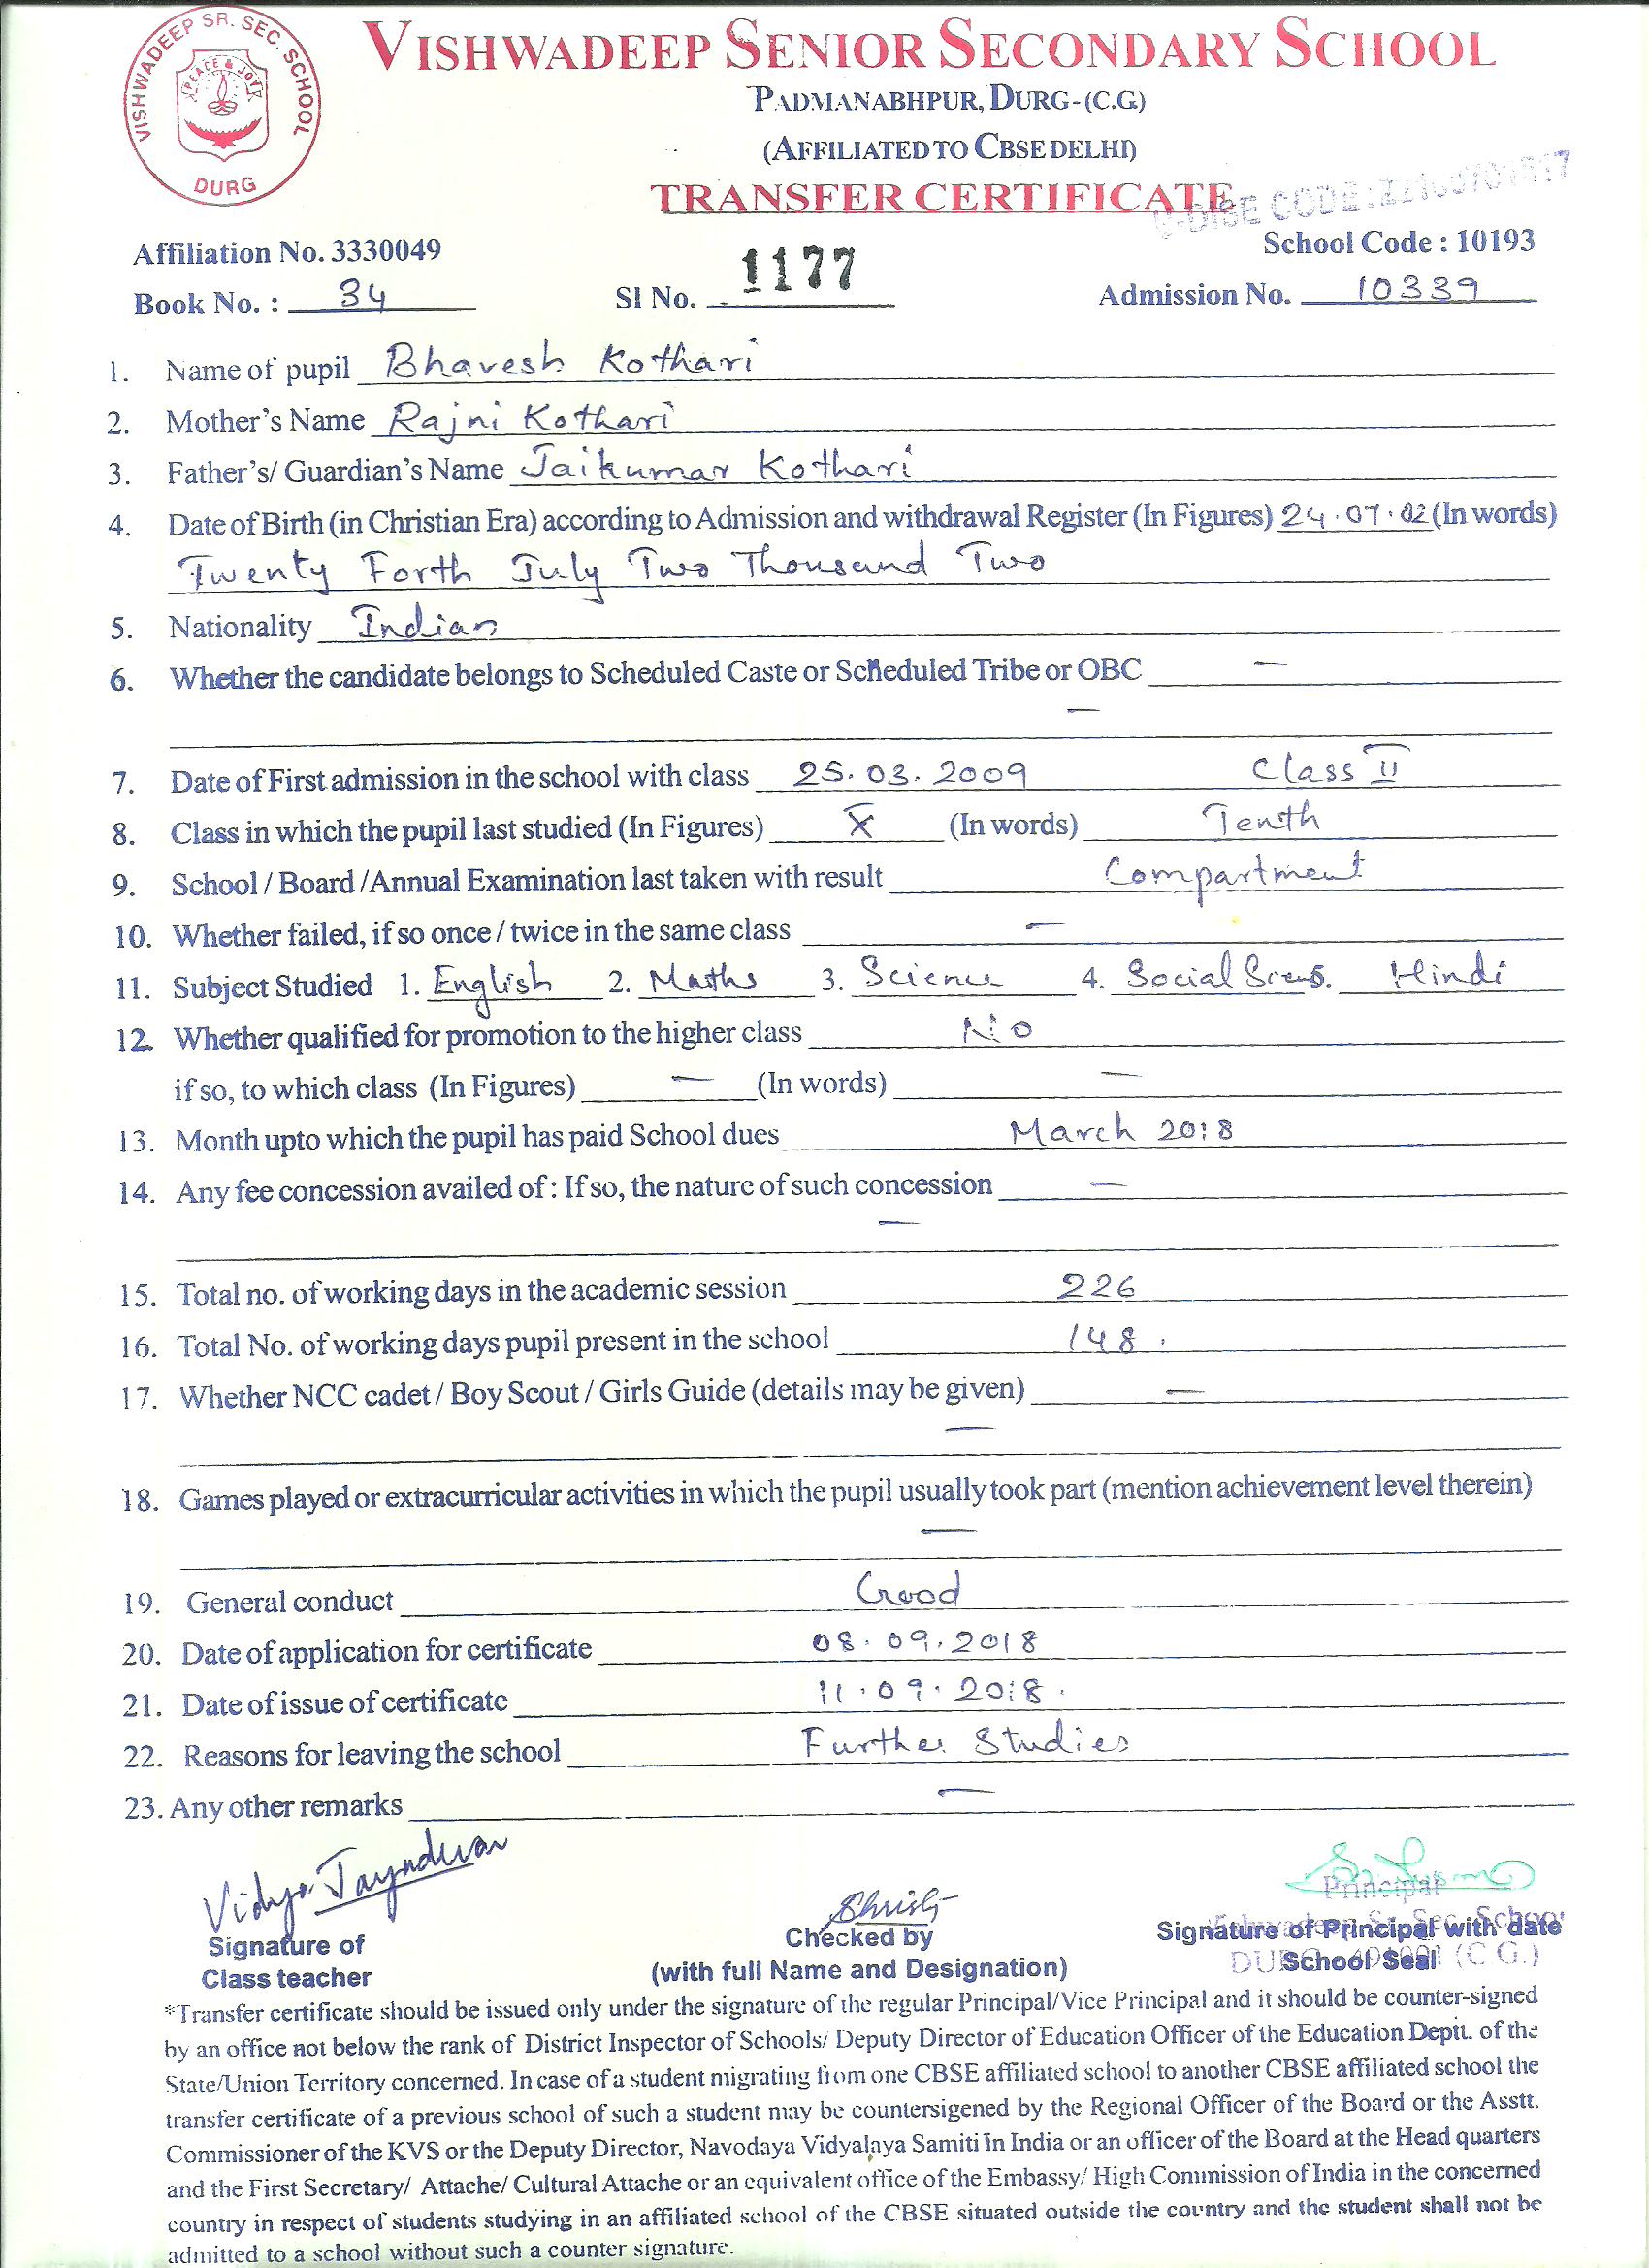 VISHWADEEP SR. SEC. SCHOOL
PEACE & JOY
DURG
VISHWADEEP SENIOR SECONDARY SCHOOL
PADMANABHPUR, DURG-(C.G)
(AFFILIATED TO CBSE DELHI)
TRANSFER CERTIFICATE
U-DISE CODE:
Affiliation No. 3330049
School Code : 10193
Book No. : 34 Sl No. 1177 Admission No. 10339
1. Name of pupil Bhavesh Kothari
2. Mother's Name Rajni Kothari
3. Father's/ Guardian's Name Jaikumar Kothari
4. Date of Birth (in Christian Era) according to Admission and withdrawal Register (In Figures) 24.07.02 (In words)
Twenty Forth July Two Thousand Two
5. Nationality Indian
6. Whether the candidate belongs to Scheduled Caste or Scheduled Tribe or OBC —
—
7. Date of First admission in the school with class 25.03.2009 Class II
8. Class in which the pupil last studied (In Figures) X (In words) Tenth
9. School / Board /Annual Examination last taken with result Compartment
10. Whether failed, if so once / twice in the same class —
11. Subject Studied 1. English 2. Maths 3. Science 4. Social 5. Hindi
12. Whether qualified for promotion to the higher class No
if so, to which class (In Figures) — (In words) —
13. Month upto which the pupil has paid School dues March 2018
14. Any fee concession availed of : If so, the nature of such concession —
—
15. Total no. of working days in the academic session 226
16. Total No. of working days pupil present in the school 148.
17. Whether NCC cadet / Boy Scout / Girls Guide (details may be given) —
—
18. Games played or extracurricular activities in which the pupil usually took part (mention achievement level therein)
—
19. General conduct Good
20. Date of application for certificate 08.09.2018
21. Date of issue of certificate 11.09.2018.
22. Reasons for leaving the school Further Studies
23. Any other remarks —
Vidya
Principal
Signature of Checked by Signature of Principal with date
Class teacher (with full Name and Designation) School Seal
DURG (C.G.)
*Transfer certificate should be issued only under the signature of the regular Principal/Vice Principal and it should be counter-signed
by an office not below the rank of District Inspector of Schools/ Deputy Director of Education Officer of the Education Deptt. of the
State/Union Territory concerned. In case of a student migrating from one CBSE affiliated school to another CBSE affiliated school the
transfer certificate of a previous school of such a student may be countersigened by the Regional Officer of the Board or the Asstt.
Commissioner of the KVS or the Deputy Director, Navodaya Vidyalaya Samiti in India or an officer of the Board at the Head quarters
and the First Secretary/ Attache/ Cultural Attache or an equivalent office of the Embassy/ High Commission of India in the concerned
country in respect of students studying in an affiliated school of the CBSE situated outside the country and the student shall not be
admitted to a school without such a counter signature.